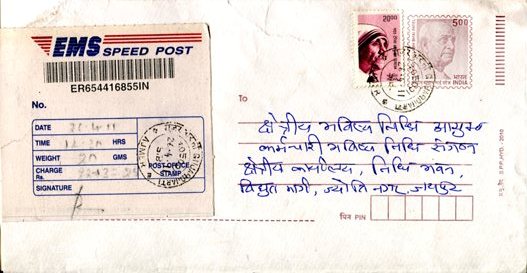 EMS SPEED POST
ER654416855IN
No.
DATE
TIME HRS
WEIGHT 20 GMS
CHARGE
Rs.
SIGNATURE
POST OFFICE
STAMP
20.00
5.00
भारत
INDIA
To
क्षेत्रीय भविष्य निधि आयुक्त
कर्मचारी भविष्य निधि संगठन
क्षेत्रीय कार्यालय, निधि भवन,
विद्युत मार्ग, ज्योति नगर, जयपुर
पिन PIN